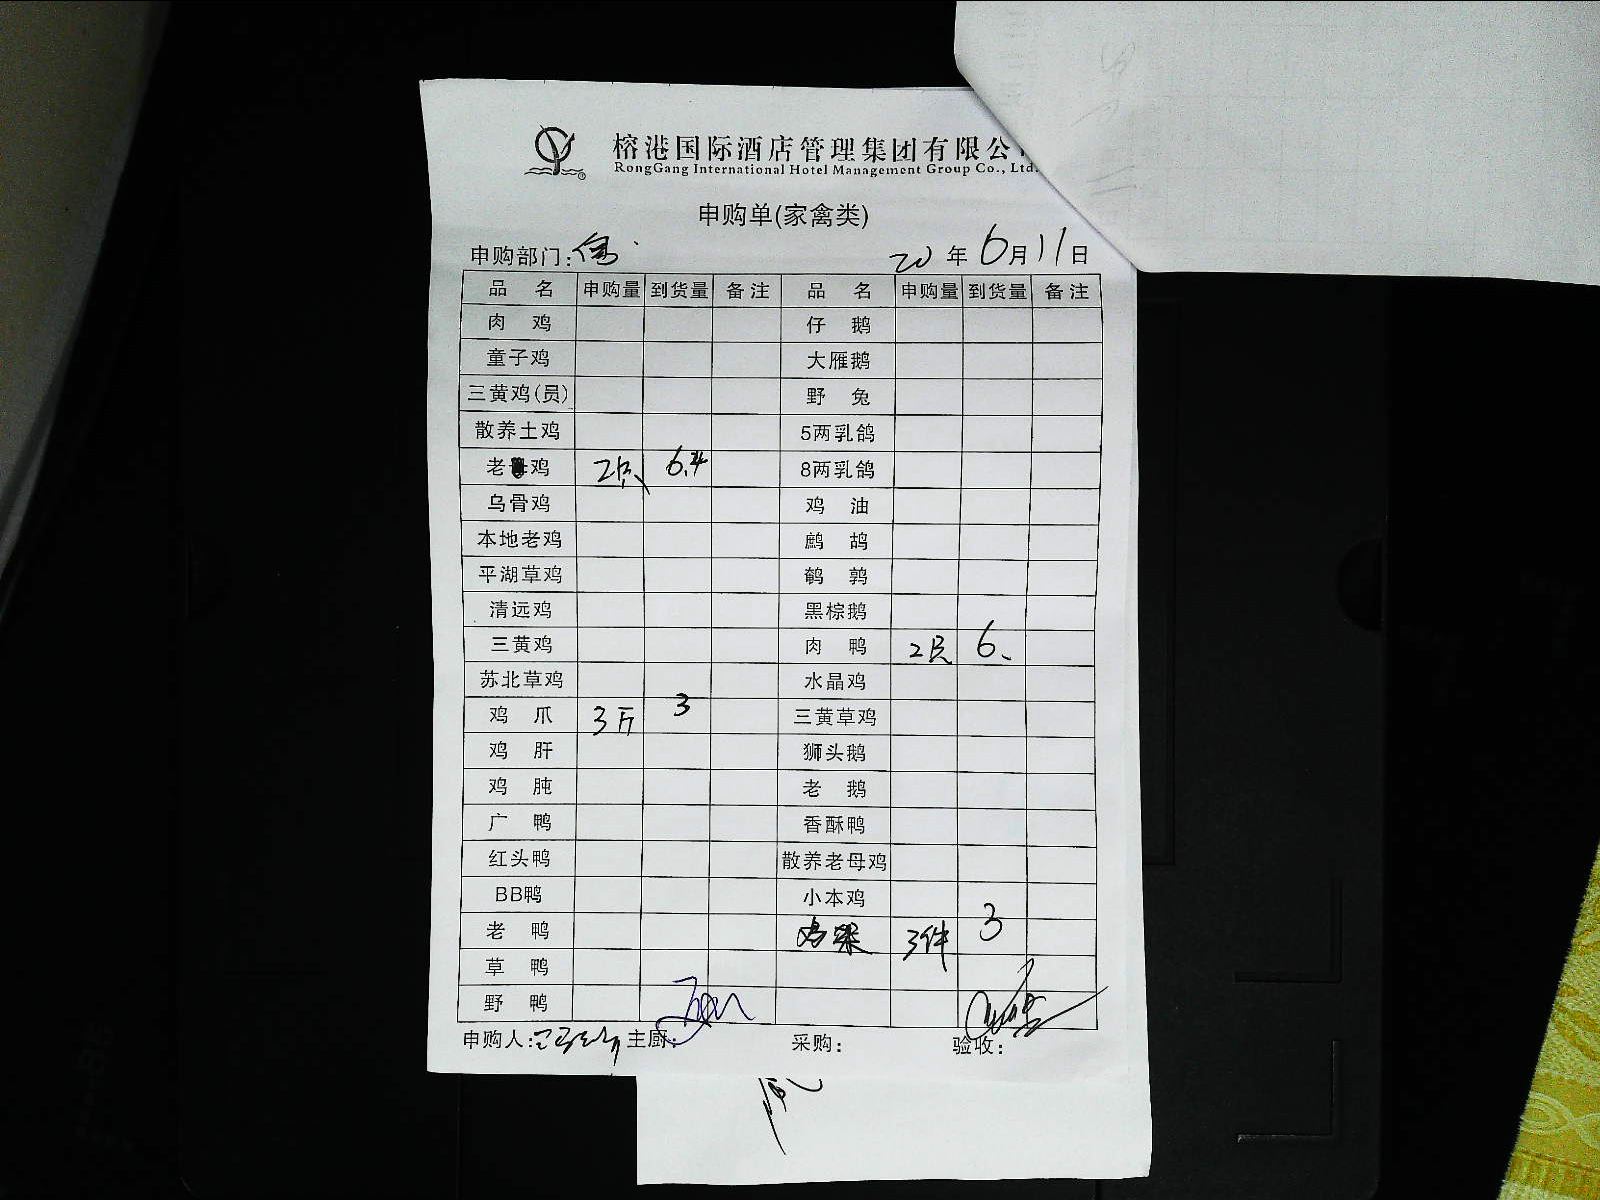 榕港国际酒店管理集团有限公
RongGang International Hotel Management Group Co., Ltd.
申购单(家禽类)
申购部门: 20 年 6 月 11 日
品 名 申购量 到货量 备注 品 名 申购量 到货量 备注
肉 鸡 仔 鹅
童子鸡 大雁鹅
三黄鸡(员) 野 兔
散养土鸡 5两乳鸽
老母鸡 2只 6.4 8两乳鸽
乌骨鸡 鸡 油
本地老鸡 鹧 鸪
平湖草鸡 鹌 鹑
清远鸡 黑棕鹅
三黄鸡 肉 鸭 2只 6.
苏北草鸡 水晶鸡
鸡 爪 3斤 3 三黄草鸡
鸡 肝 狮头鹅
鸡 肫 老 鹅
广 鸭 香酥鸭
红头鸭 散养老母鸡
BB鸭 小本鸡
老 鸭 鸡架 3件 3
草 鸭
野 鸭
申购人: 主厨: 采购: 验收: